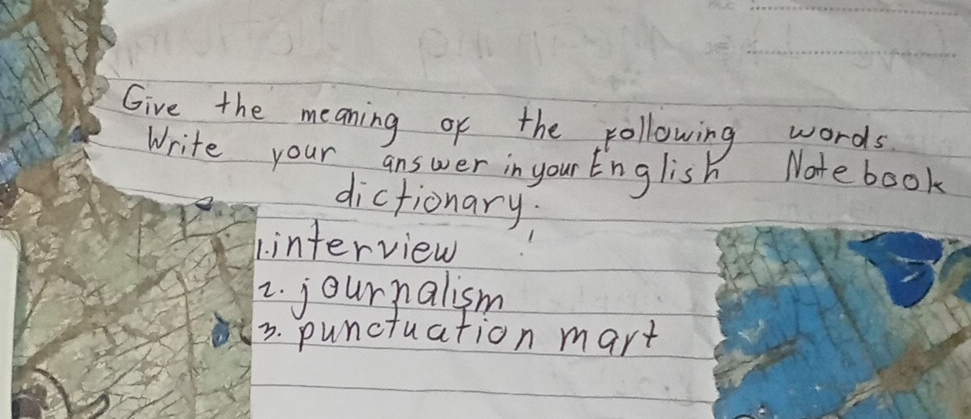 Give the meaning of the following words.
Write your answer in your English Notebook
dictionary.
1. interview
2. journalism
3. punctuation mart